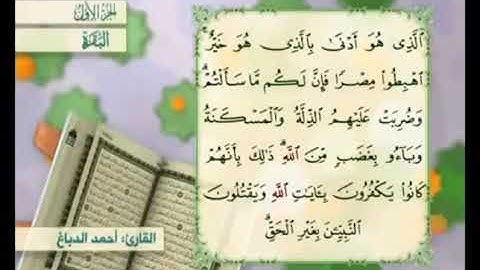 الجزء الأول
البقرة
الَّذِى هُوَ أَدْنَىٰ بِالَّذِى هُوَ خَيْرٌ ۚ
اهْبِطُوا۟ مِصْرًا فَإِنَّ لَكُم مَّا سَأَلْتُمْ ۗ
وَضُرِبَتْ عَلَيْهِمُ الذِّلَّةُ وَالْمَسْكَنَةُ
وَبَآءُو بِغَضَبٍ مِّنَ اللَّهِ ۗ ذَٰلِكَ بِأَنَّهُمْ
كَانُوا۟ يَكْفُرُونَ بِـَٔايَٰتِ اللَّهِ وَيَقْتُلُونَ
النَّبِيِّـۧنَ بِغَيْرِ الْحَقِّ ۗ
القارئ: أحمد الدباغ